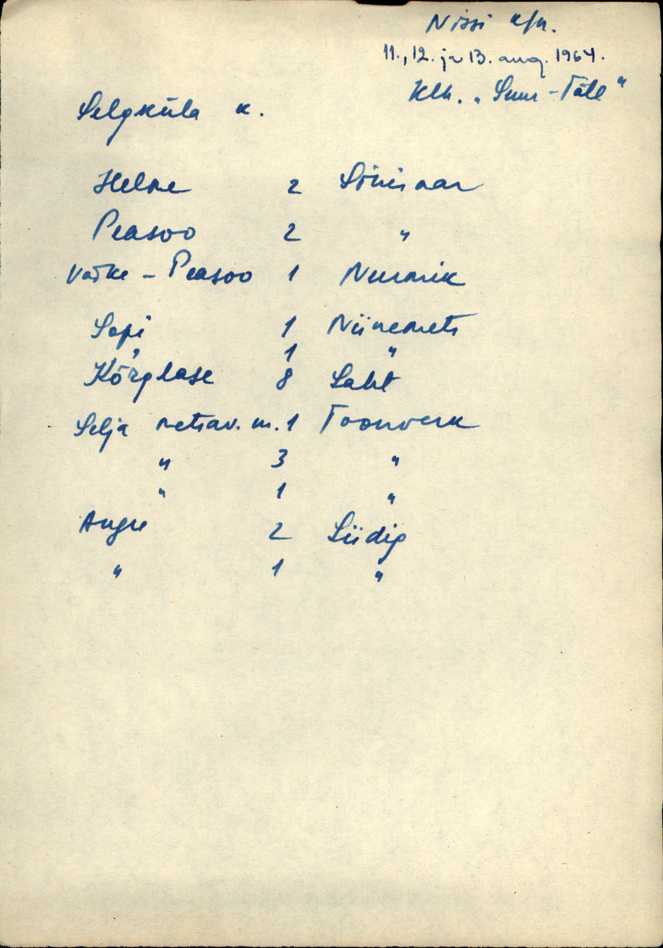 Nissi khn.
11., 12. ja 13. aug. 1964.
Klh. „Suur-Tõll"
Selgküla k.
Helme 2
Peasoo 2 "
Väike-Peasoo 1 Nurmik
Sepi 1 Niinemets
" 1 "
Kõrglase 8 Saht
Selja metsav. m. 1 Toomverk
" 3 "
" 1 "
Angre 2 Siidig
" 1 "